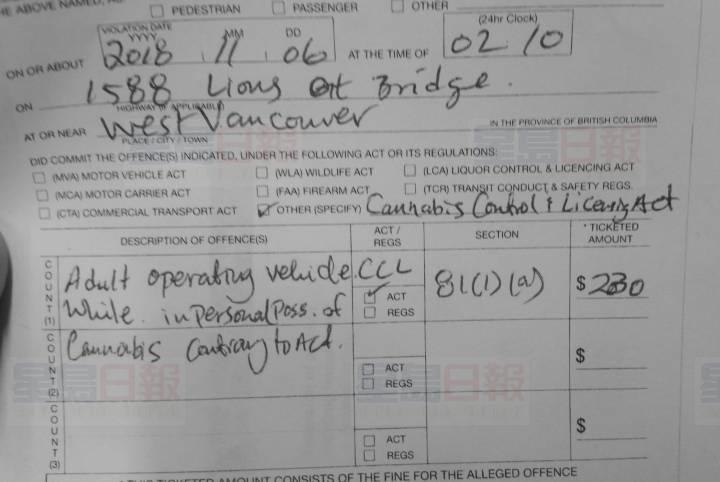 HE ABOVE NAMED, AS
PEDESTRIAN PASSENGER OTHER
VIOLATION DATE (24hr Clock)
YYYY MM DD
ON OR ABOUT 2018 11 06 AT THE TIME OF 02 10
ON 1588 Lions Bridge.
HIGHWAY (IF APPLICABLE)
AT OR NEAR West Vancouver IN THE PROVINCE OF BRITISH COLUMBIA
PLACE / CITY / TOWN
DID COMMIT THE OFFENCE(S) INDICATED, UNDER THE FOLLOWING ACT OR ITS REGULATIONS:
(MVA) MOTOR VEHICLE ACT (WLA) WILDLIFE ACT (LCA) LIQUOR CONTROL & LICENCING ACT
(MCA) MOTOR CARRIER ACT (FAA) FIREARM ACT (TCR) TRANSIT CONDUCT & SAFETY REGS.
(CTA) COMMERCIAL TRANSPORT ACT OTHER (SPECIFY) Cannabis Control & Licensing Act
DESCRIPTION OF OFFENCE(S) ACT / REGS SECTION * TICKETED AMOUNT
COUNT (1) Adult operating vehicle CCL 81(1)(a) $ 230
While in Personal Poss. of ACT
REGS
COUNT (2) Cannabis Contrary to Act. $
ACT
REGS
COUNT (3) $
ACT
REGS
THIS TICKETED AMOUNT CONSISTS OF THE FINE FOR THE ALLEGED OFFENCE
星島日報
星島日報
星島日報
星島日報